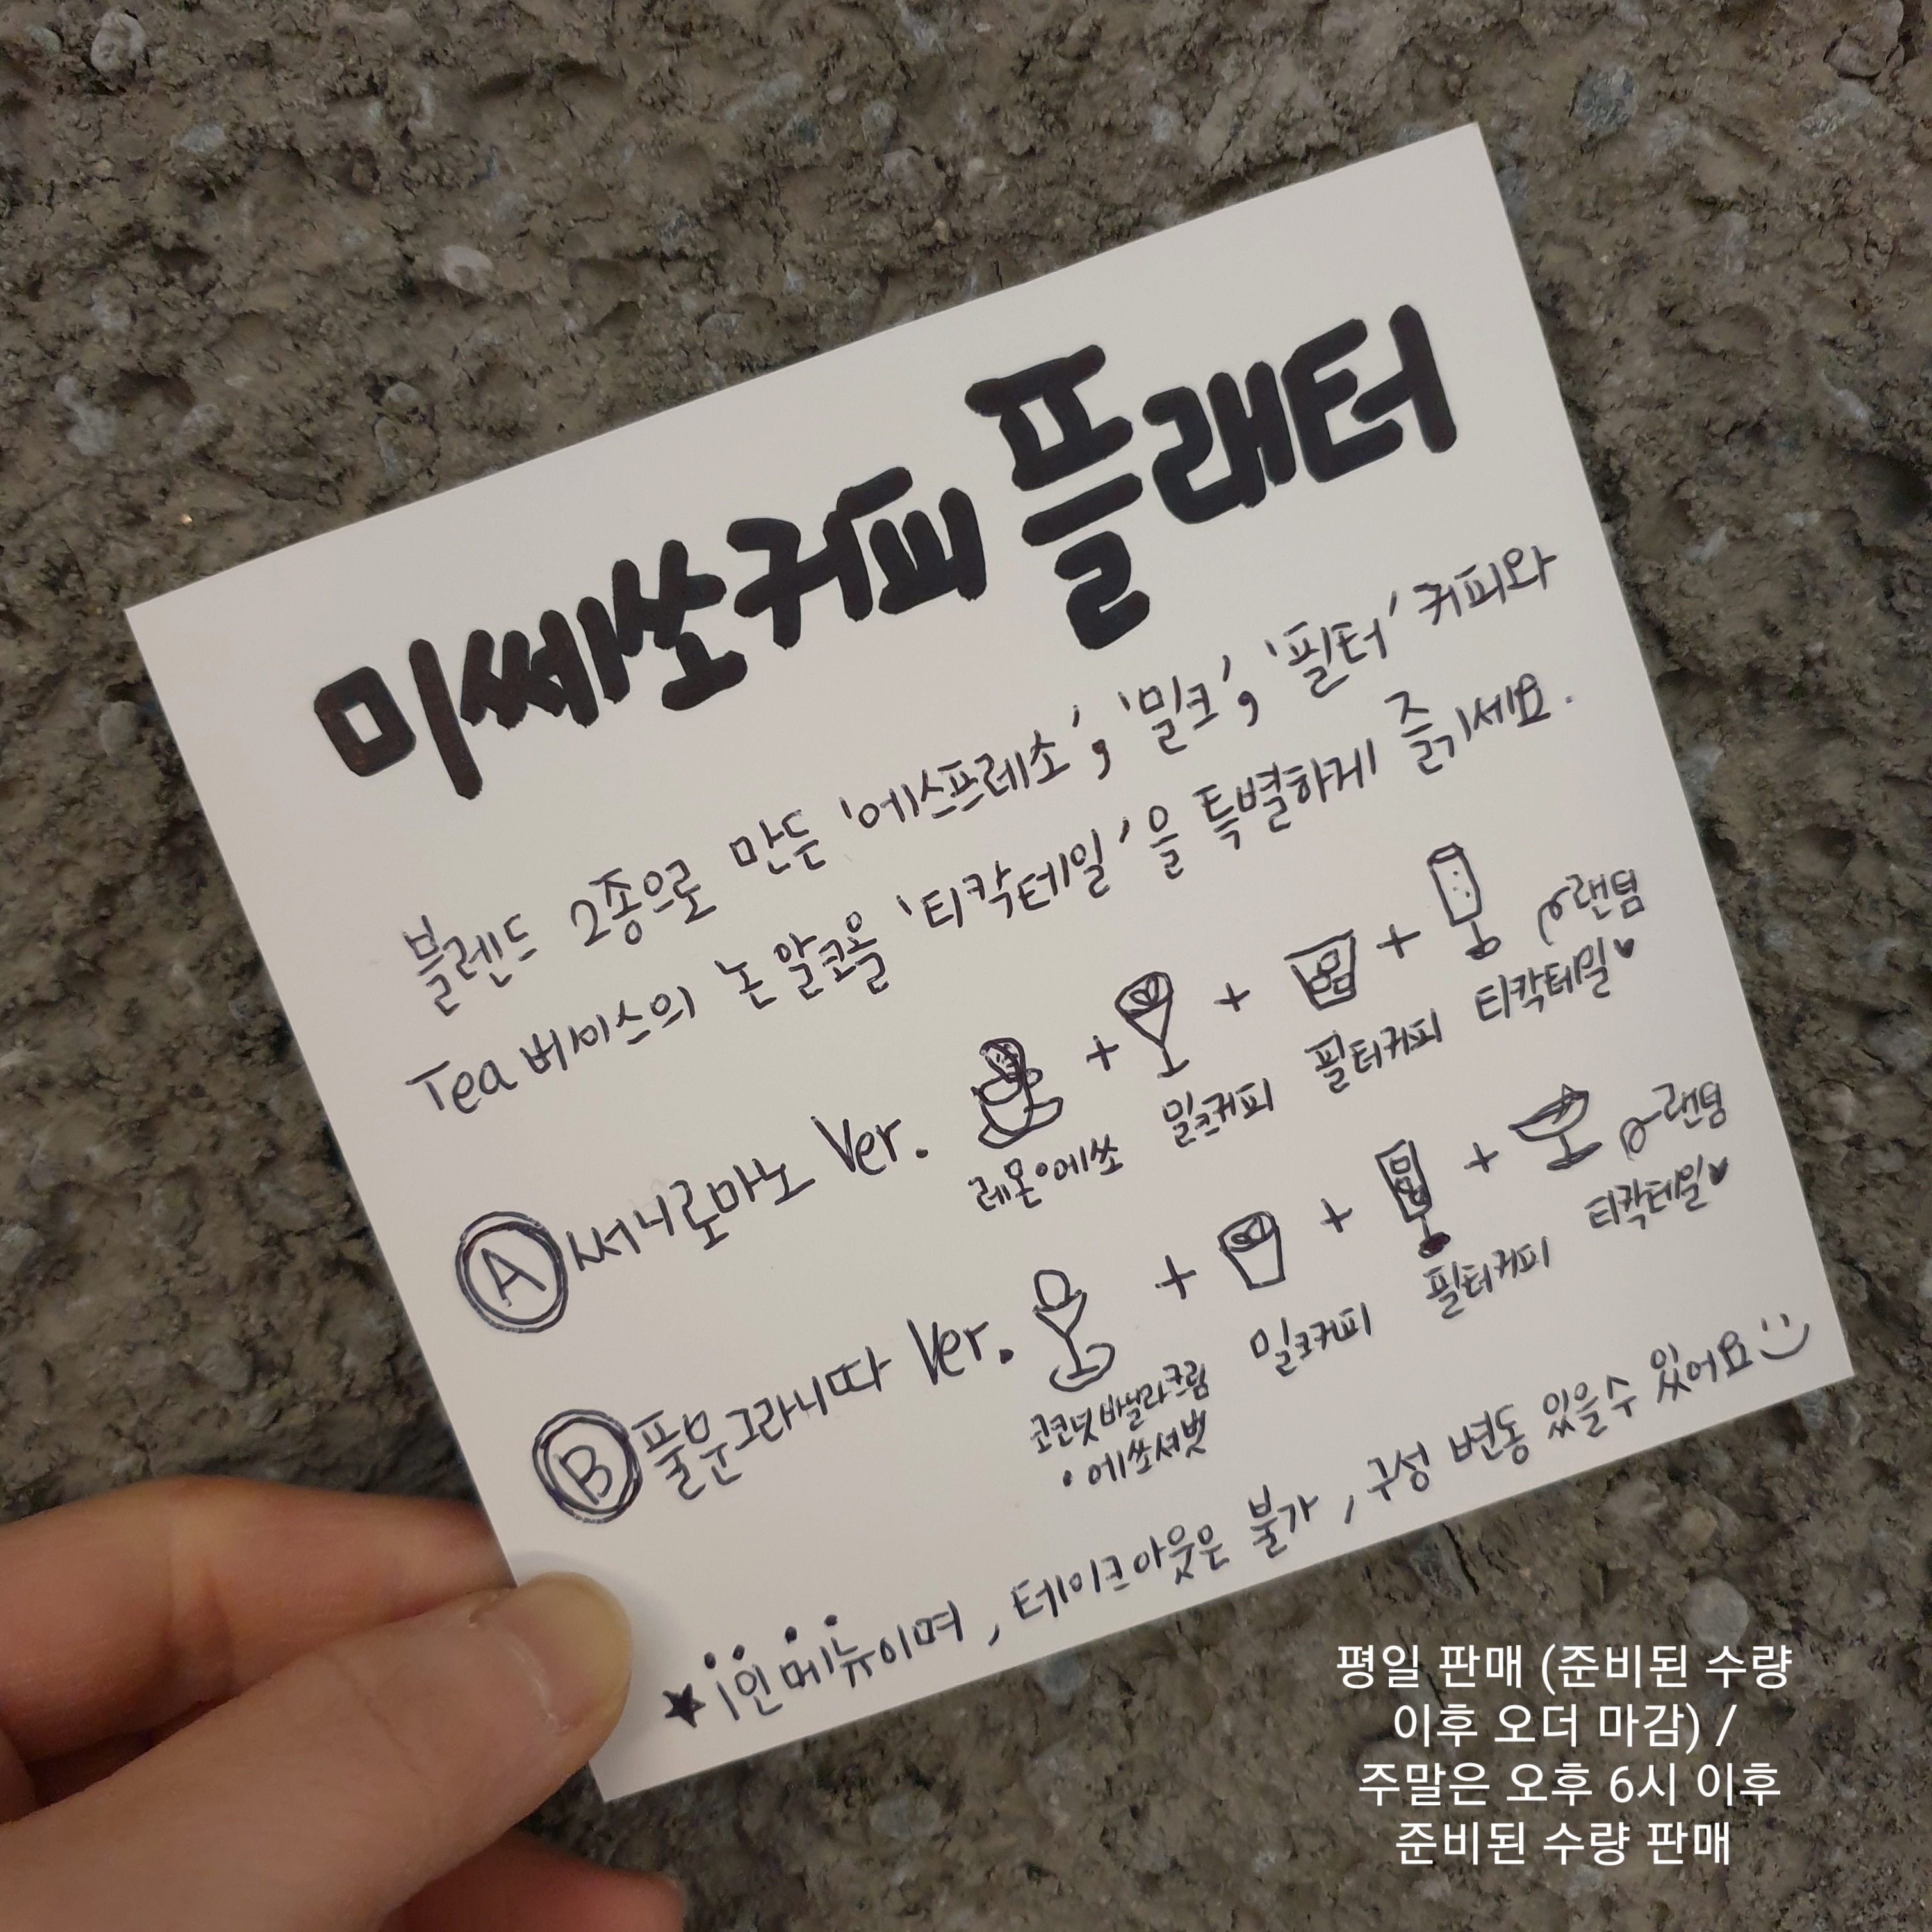 미쎄쏘커피 플래터
블렌드 2종으로 만든 '에스프레소', '밀크', '필터' 커피와
Tea 베이스의 논알코올 '티칵테일'을 특별하게 즐기세요.
Ⓐ 써니로마노 Ver. + + + 랜덤
레몬•에쏘 밀크커피 필터커피 티칵테일♥
Ⓑ 풀문그라니따 Ver. + + + 랜덤
코코넛바닐라크림 밀크커피 필터커피 티칵테일♥
•에쏘셔벗
★1인메뉴이며, 테이크아웃은 불가, 구성 변동 있을 수 있어요 :)
평일 판매 (준비된 수량
이후 오더 마감) /
주말은 오후 6시 이후
준비된 수량 판매